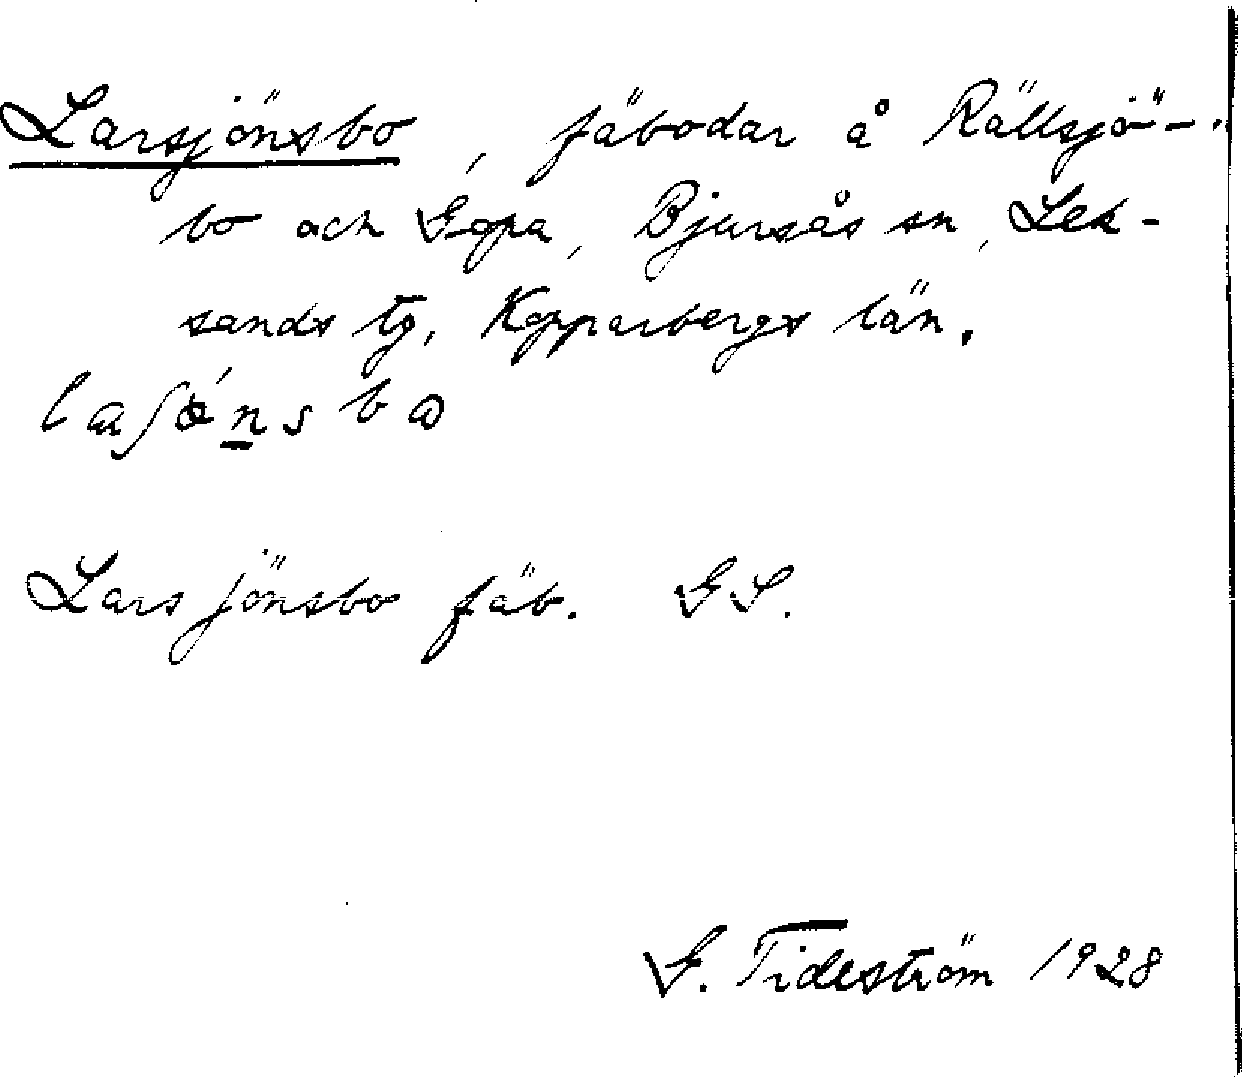 Larsjönsbo, fäbodar å Rällsjö-
bo och Gopa, Bjursås sn, Lek-
sands tg, Kopparbergs län.
Lars jönsbo fäb. GS.
G. Tideström 1928